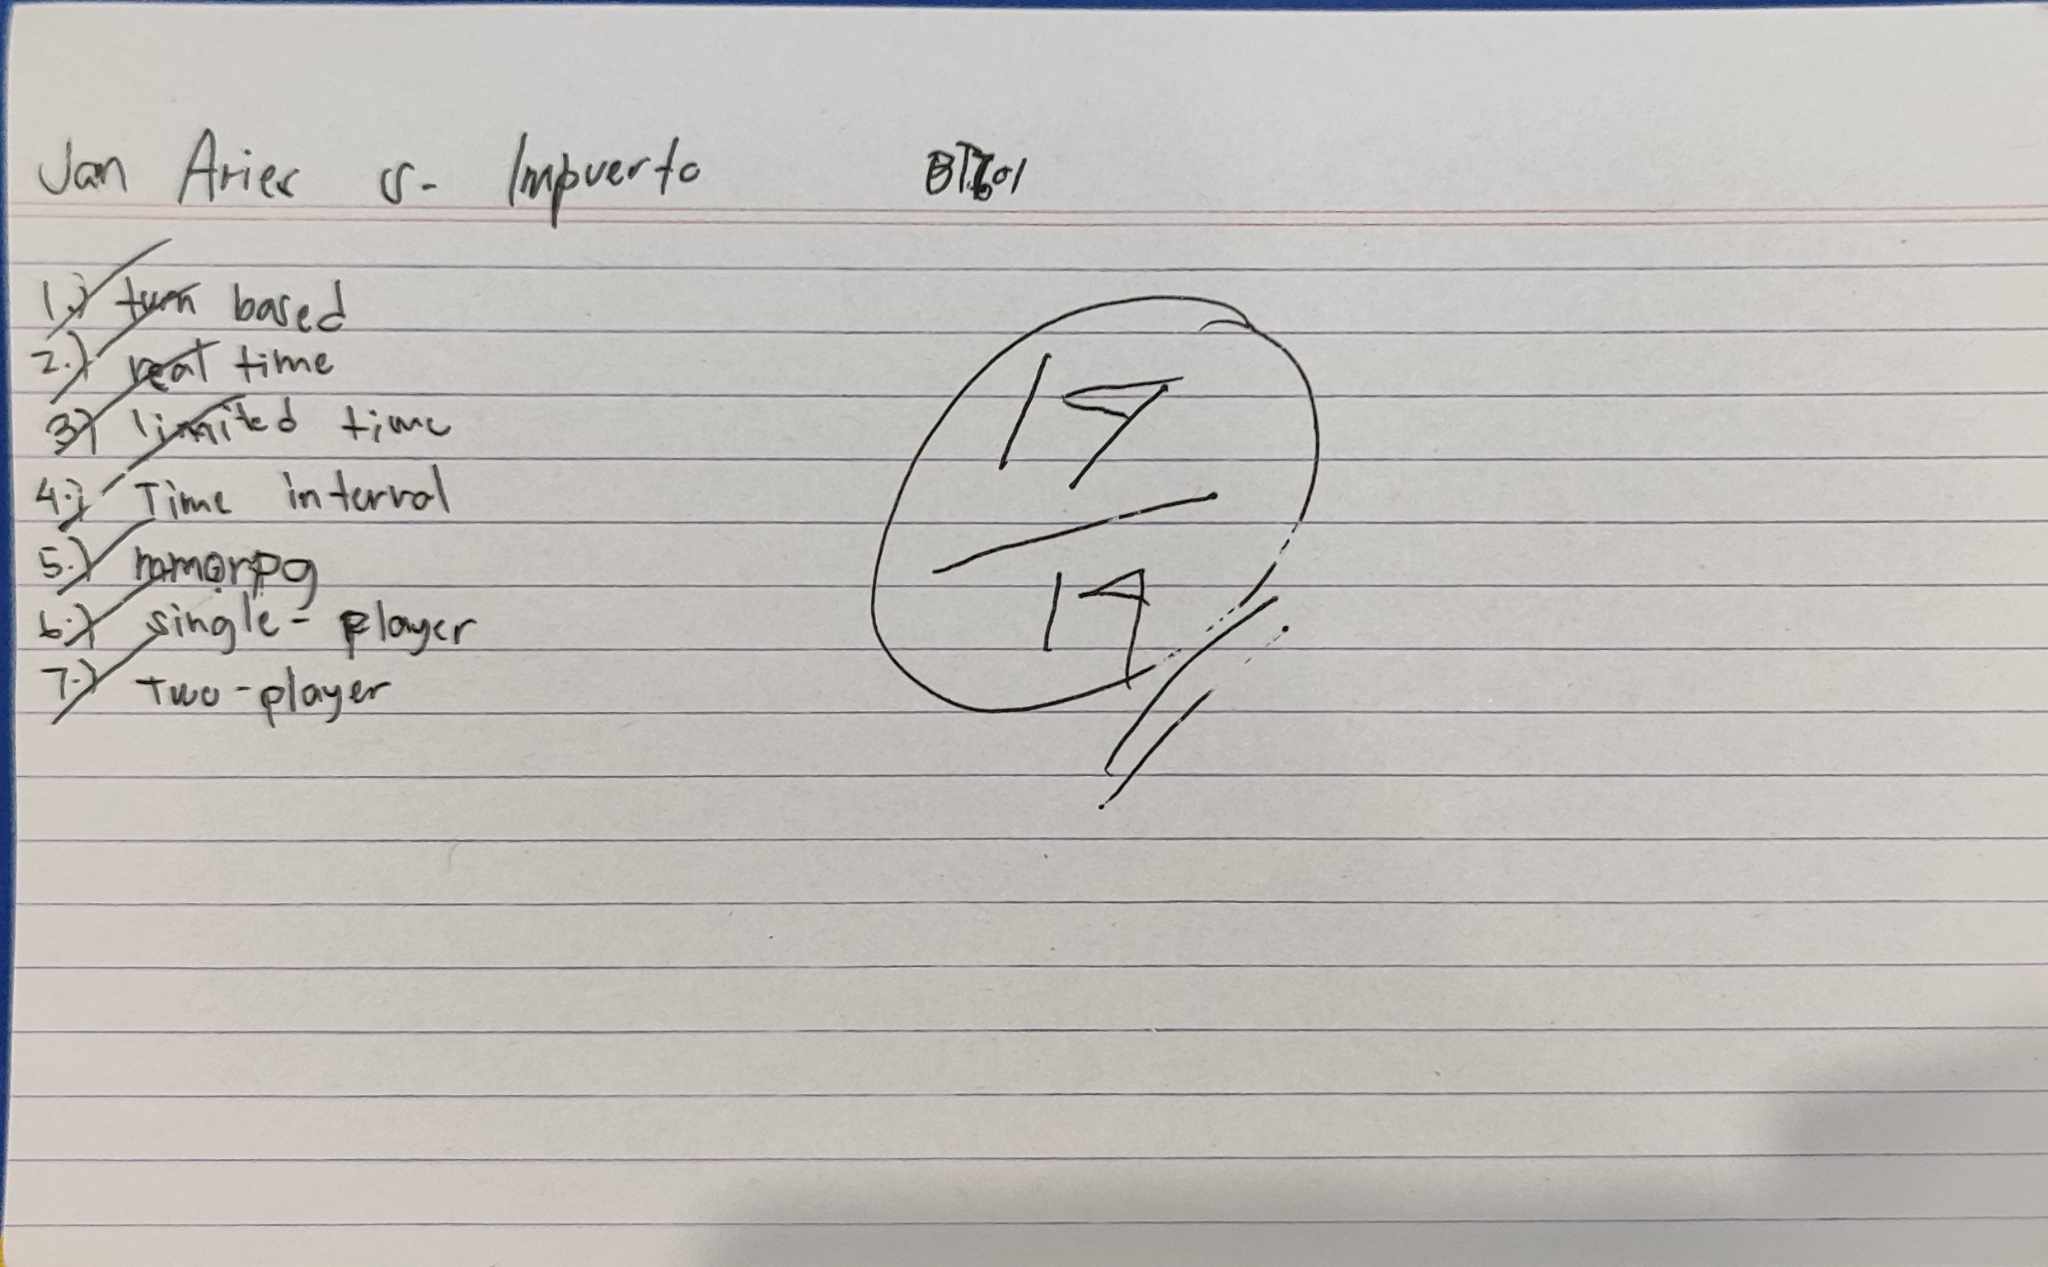 Jan Aries S. Impuerto
1.) turn based
2.) real time
3.) limited time
4.) Time interval
5.) mmorpg
6.) single-player
7.) Two-player
19
19